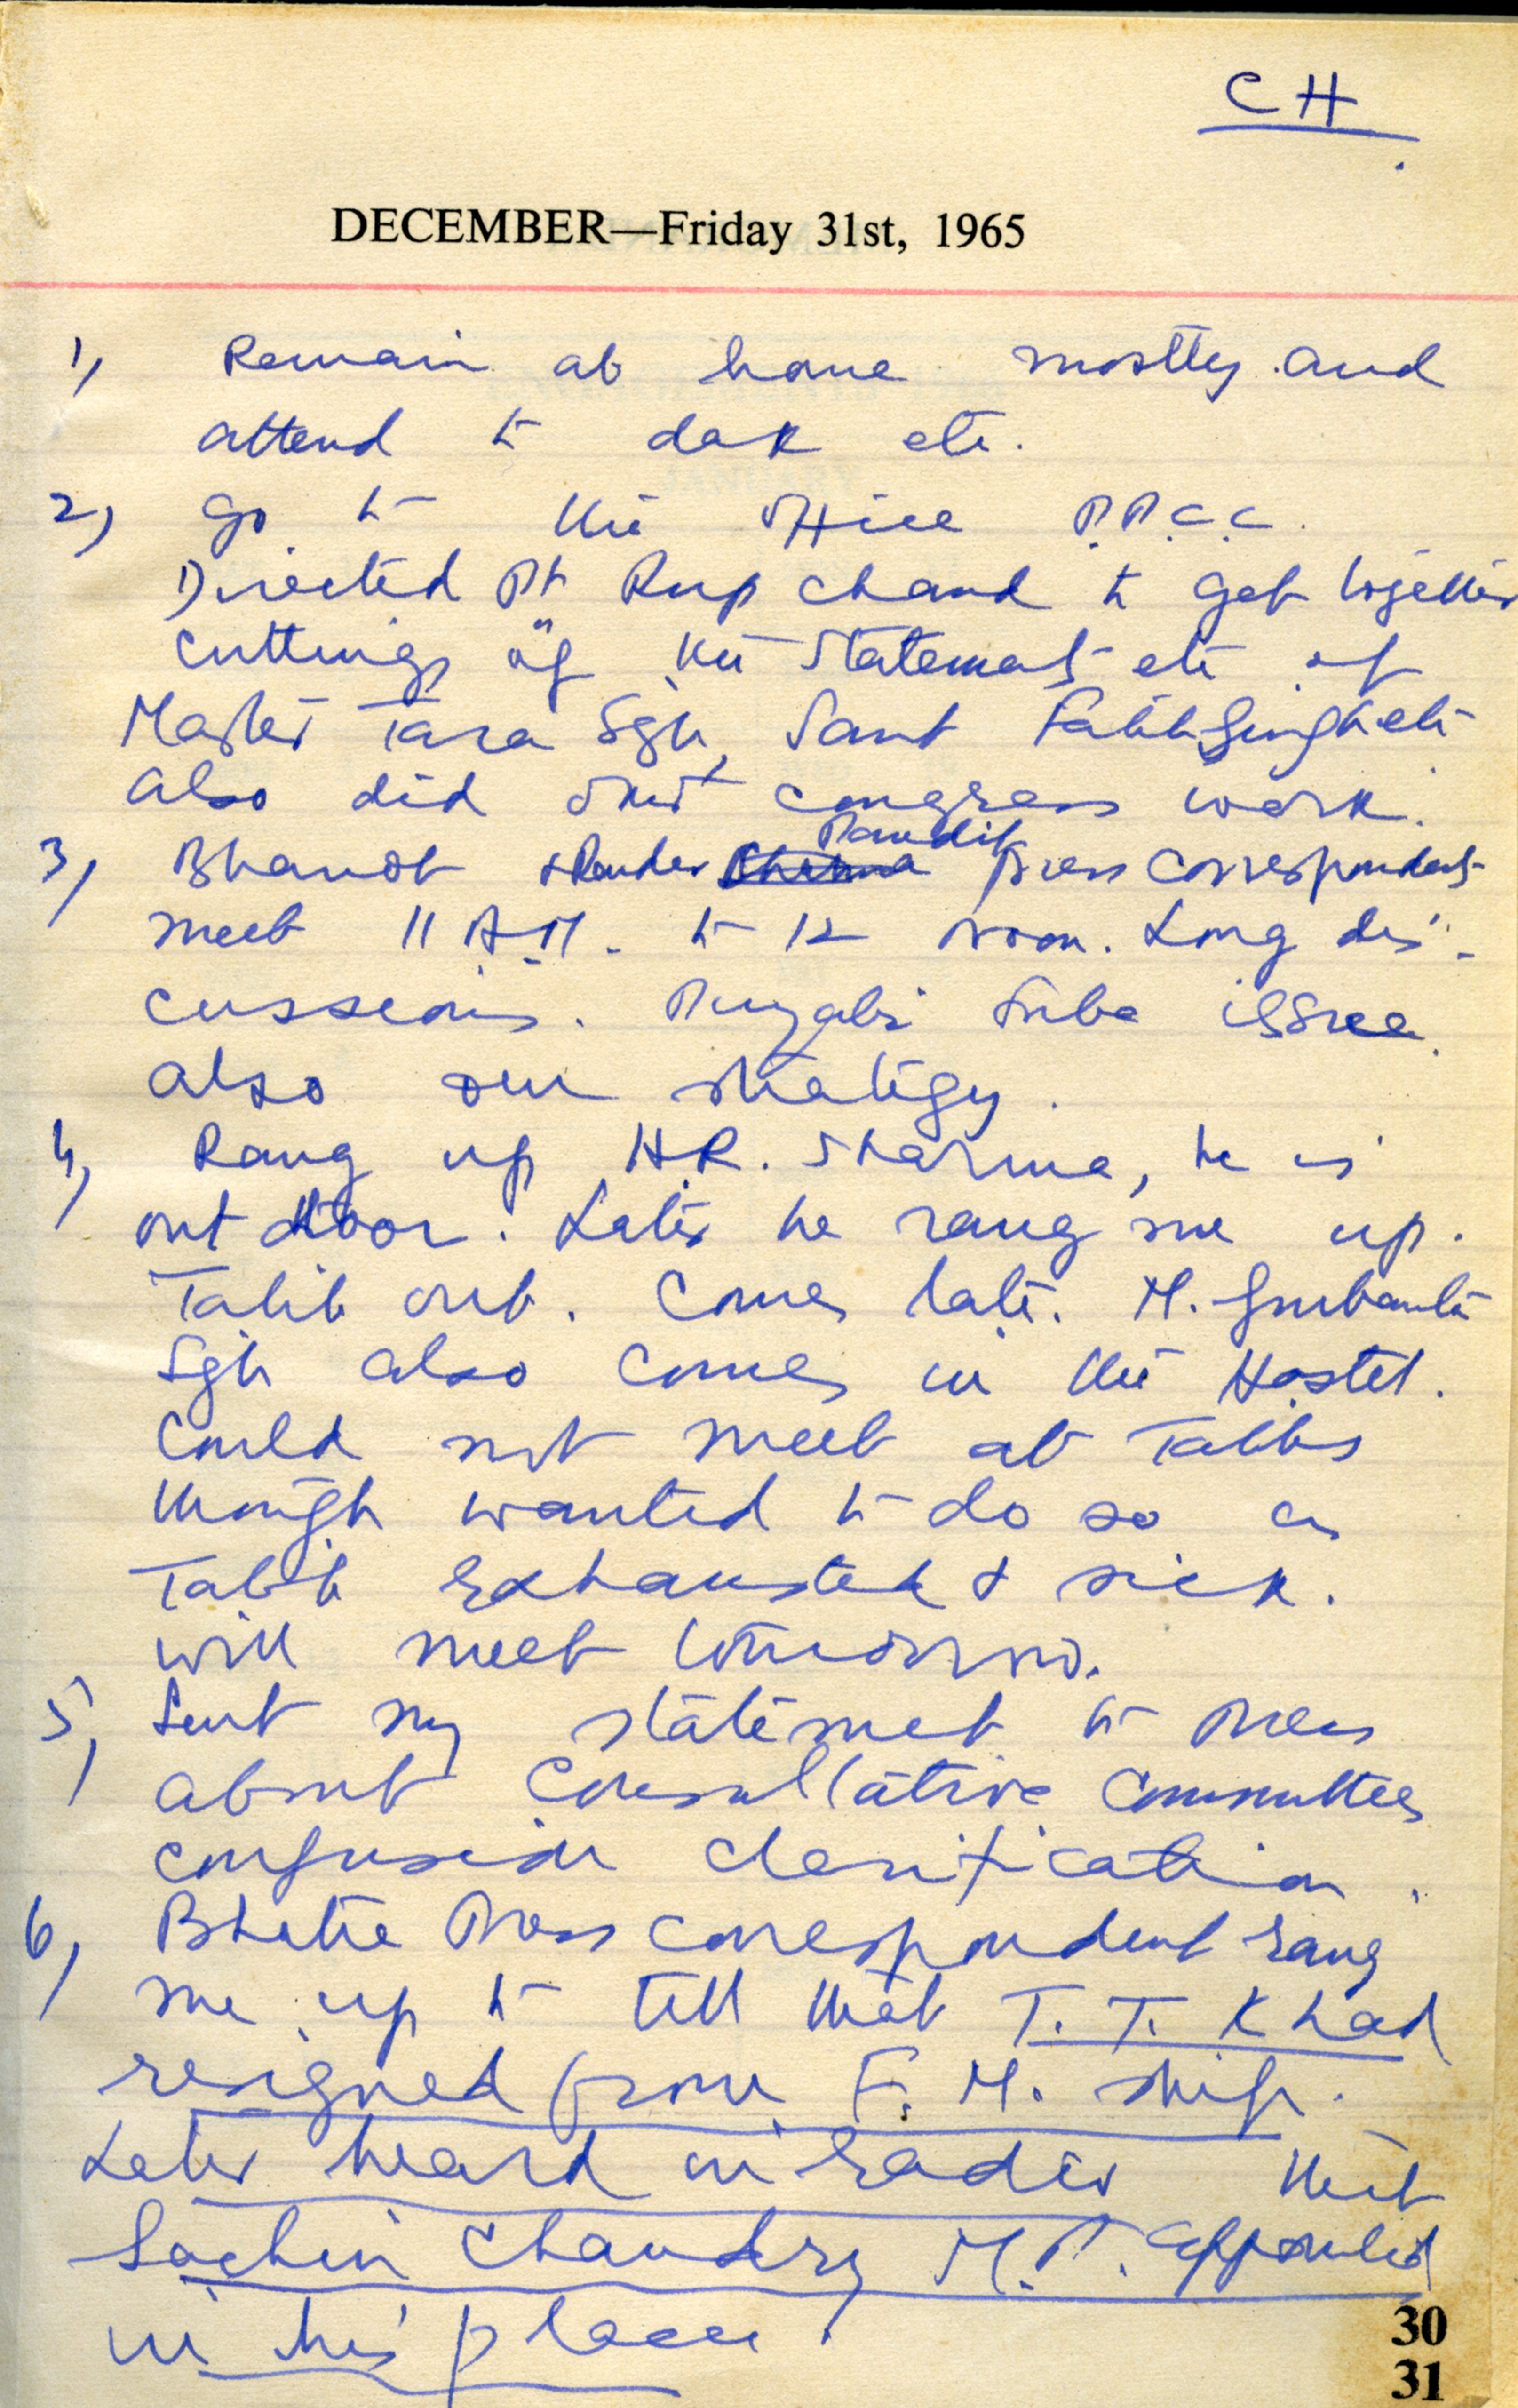 CH
DECEMBER—Friday 31st, 1965
1) Remain at home mostly and
attend to dak etc.
2) Go to the office P.P.C.C.
Directed Pt Rup Chand to get together
cuttings of the statements etc of
Master Tara Sgh, Sant Fateh Singh etc
also did other congress work.
Pandit
3) Bhanot & press correspondents
meet 11 A.M. to 12 noon. Long dis-
cussions. Punjabi Suba issue
also our strategy.
4) Rang up H.R. Sharma, he is
out door. Later he rang me up.
Talib out. Comes late. M. Gurbanta
Sgh also comes in the Hostel.
Could not meet at Talibs
though wanted to do so as
Talib exhausted & sick.
will meet tomorrow.
5) Sent my statement to press
about Consultative Committee
confusion clarification.
6) Bhatia Press correspondent rang
me up to tell that T. T. K had
resigned from F. M. ship.
Later heard in radio that
Sachin Chaudry M.P. appointed
in his place.
30
31